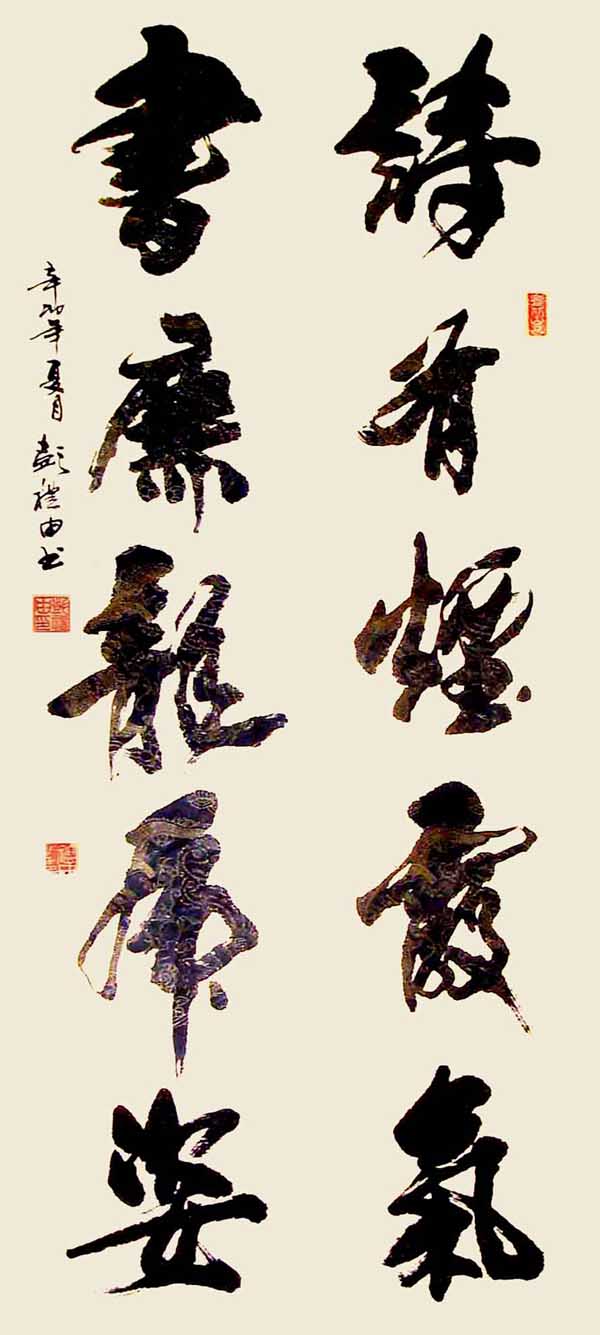 詩有煙霞氣
書兼龍虎姿
辛卯年夏月彭禮由书